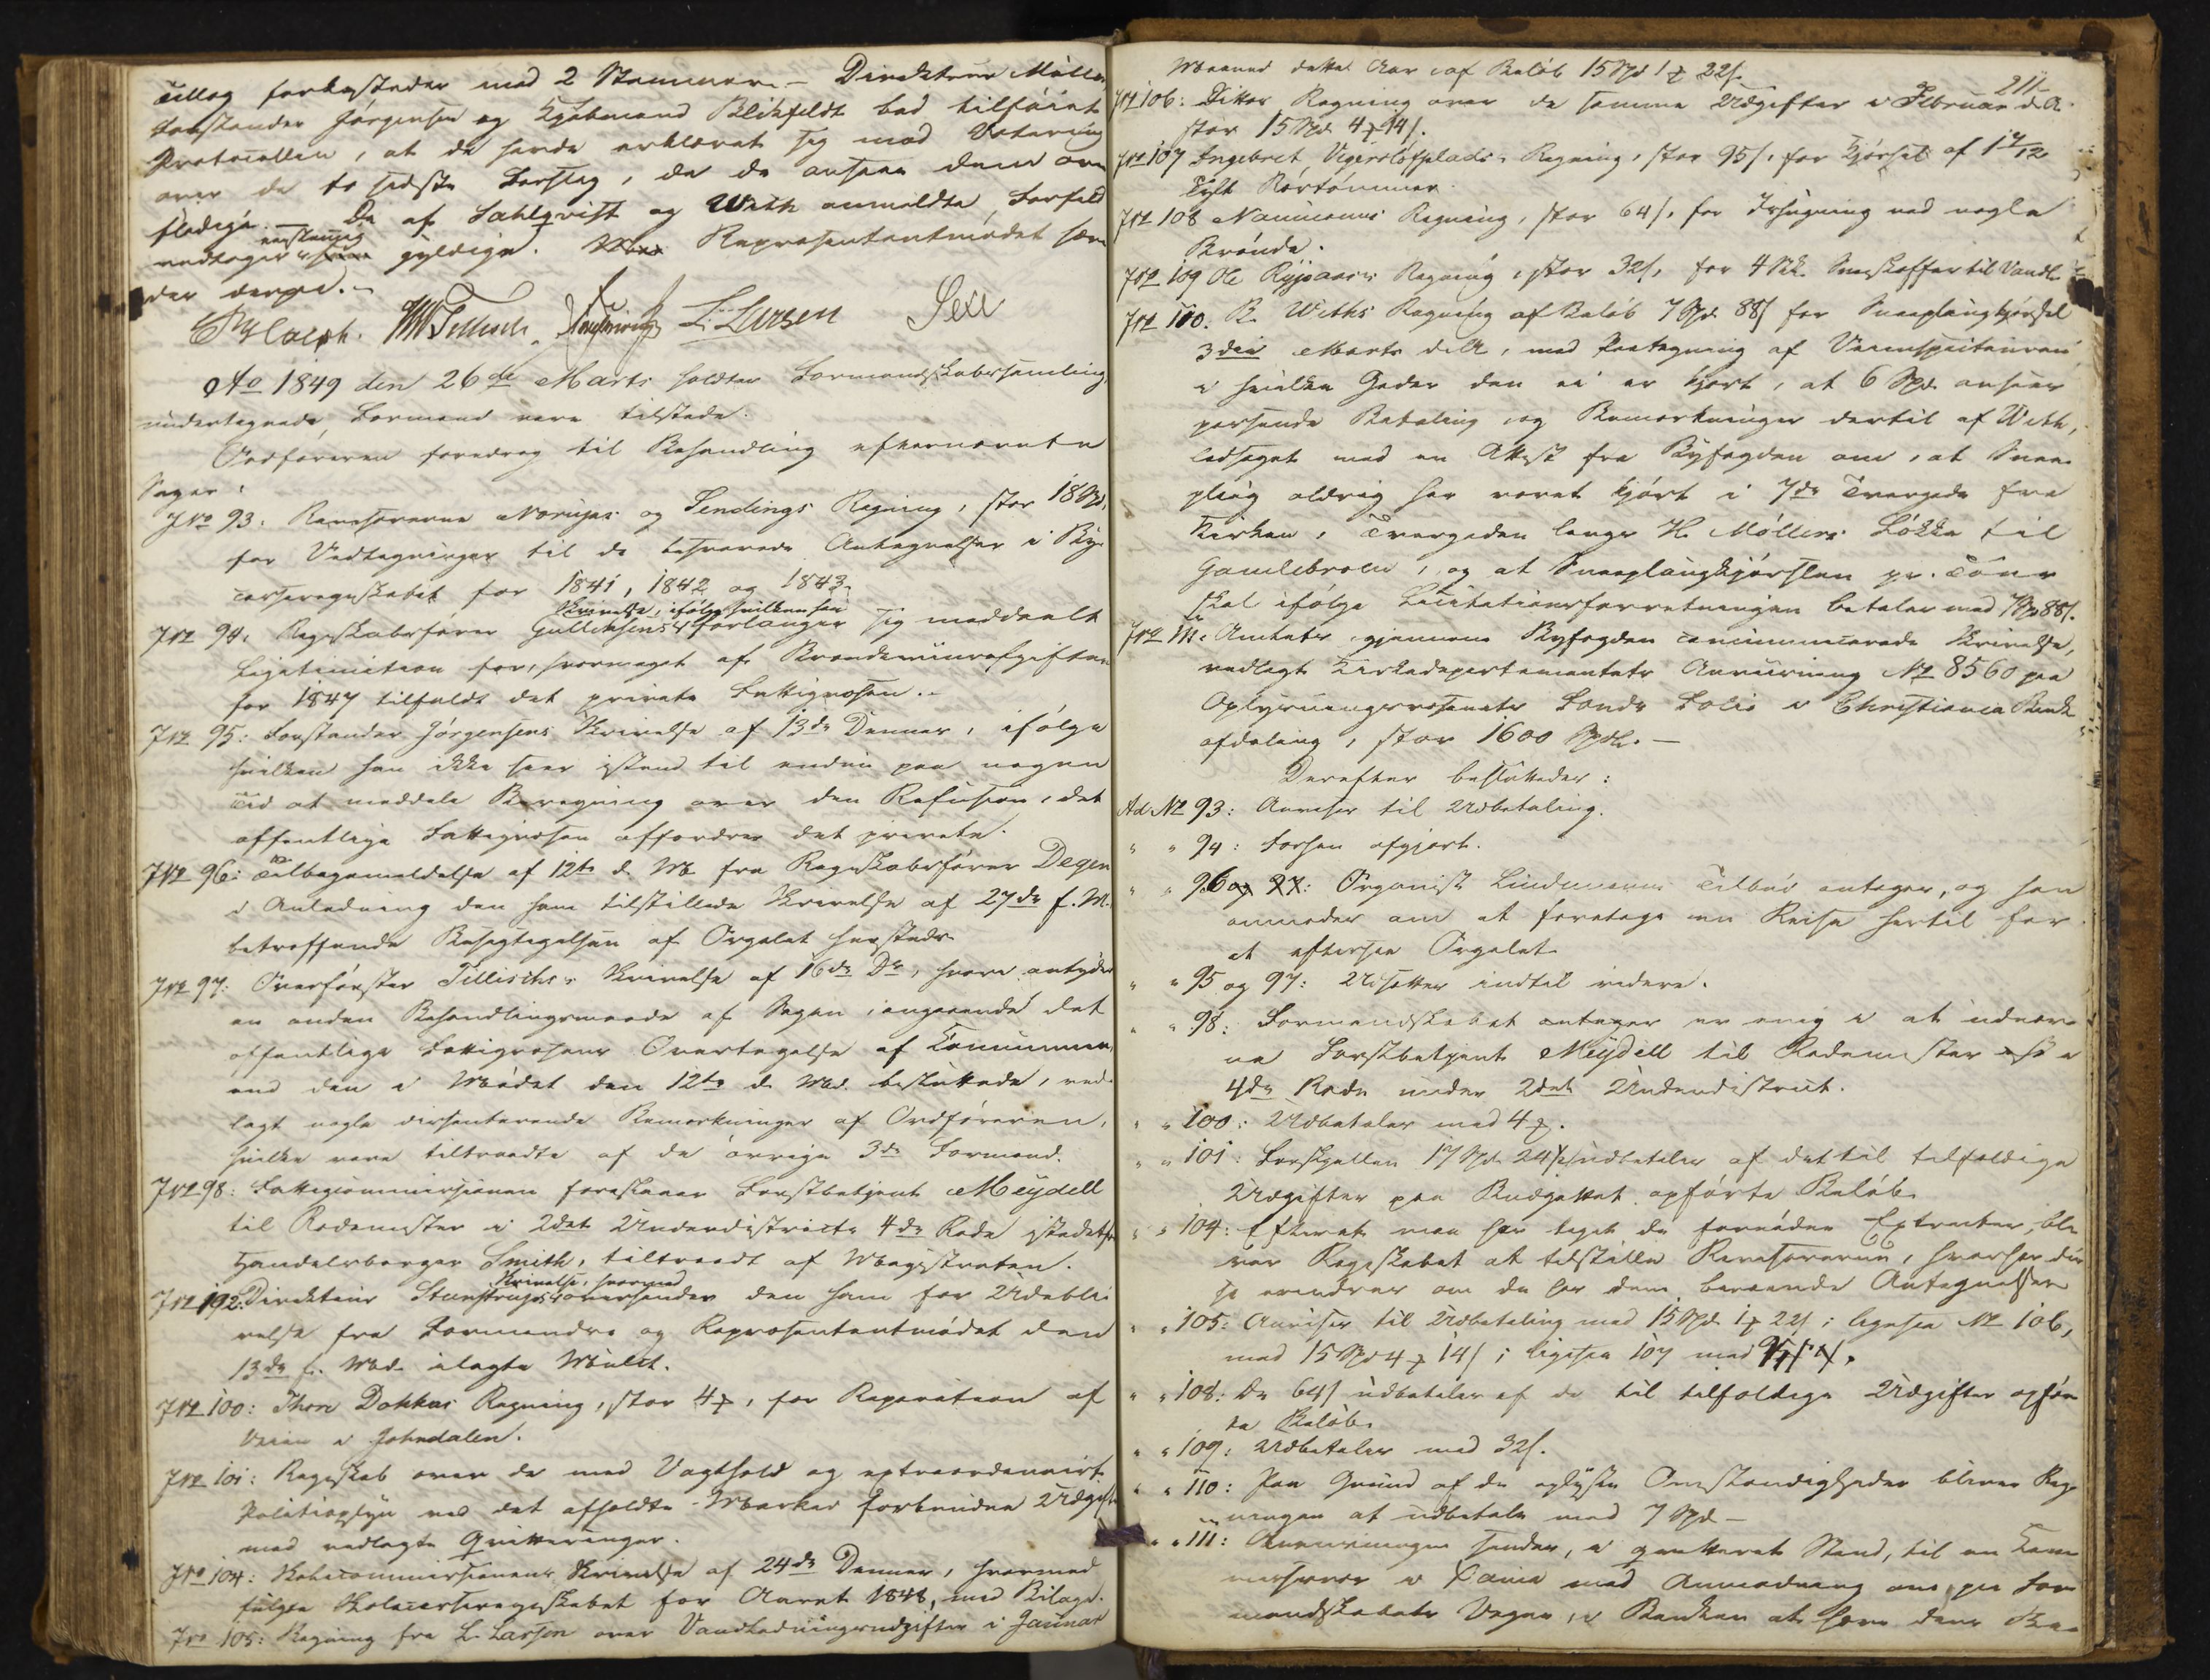 Tillæg forkastedes med 2 Stemmer. – Direkteur Møller,
Forstander Jørgensen og Kjøbmand Blichfeldt bad tilføiet
Protocollen, at de havde erklæret sig mod Votering
over de to sidste Forslag, da de ansee dem over
flødige. – De af Sahlqvist og Weth anmeldte Forfald
vedtoges enstemmig gyldige. Repræsentantmødet hæve
des dermed. –
L. Larsen Sell
Ao 1849 den 26de Marts holdtes Formandskabssamling,
undertegnede Formænd vare tilstede.
Ordføreren foredrog til Behandling efternævnte
Sager:
J№ 93: Revisorerne Norups og Sendings Regning, stor 18 Spd.
for Vedtegninger til de besvarede Antegnelser i By-
casseregnskabet for 1841, 1842 og 1843.
J№ 94: Regnskabsfører Gullichsens Skrivelse, ifølge hvilken han forlanger sig meddeelt
Legitimation for, hvormeget af Brændeviinsafgiften
for 1847 tilfaldt det private Fattigvæsen. –
J№ 95: Forstander Jørgensens Skrivelse af 13de Dennes, ifølge
hvilken han ikke seer istand til endnu paa nogen
Tid at meddele Beregning over den Refusion, det
offentlige Fattigvæsen affordrer det private.
J№ 96: Tilbagemeldelse af 12te d. M. fra Regnskabsfører Degen
i Anledning den ham tilstillede Skrivelse af 27de f. M.
betræffende Besigtigelsen af Orgelet hersteds.
J№ 97: Overførster Tillischs Skrivelse af 16de Ds, hvori antydes
en anden Behandlingsmaade af Sagen, angaaende det
offentlige Fattigvæsens Overtagelse af Communen,
end den i Mødet den 12te d. Md. besluttede, ved-
lagt nogle dissenterende Bemærkninger af Ordføreren,
hvilke vare tiltraadte af de øvrige 3de Formænd.
J№ 98: Fattigcommissionen foreslaaer Forstbetjent Meydell
til Rodemester i 2det Underdistricts 4de Rode istedetfor
Handelsborger Smith, tiltraadt af Magistraten.
Direkteur Stenstrups Skrivelse, hvormed oversendes den ham for Udebli-
velse fra Formænds og Repræsentantmødet den
13de f. Md. ilagte Mulct.
J№ 100: Thore Dokkas Regning, stor 4 ₰, for Reparation af
Veien i Johndalen.
J№ 101: Regnskab over de med Vagthold og extraordinairt
Politiopsyn ved det afholdte Marked forbundne Udgifter
med vedlagte Qvitteringer.
J№ 104: Skolecommissionens Skrivelse af 24de Dennes, hvormed
fulgte Skolecasseregnskabet for Aaret 1848, med Bilage.
J№ 105: Regning fra L. Larsen over Vandledningsudgifter i Januar
Maaned dette Aar af Beløb 15 Spd 1 ₰ 22 s.
211.
J№ 106: Dittos Regning over de samme Udgifter i Februar d. A.
stor 15 Spd. 4 ₰ 14 s.
J№ 107 Ingebret Vigersløfplads's Regning, stor 95 s. for Kjørsel af
Tylt Rørtømmer.
J№ 108 Neumanns Regning, stor 64 s. for Ishugning ved nogle
Brønde.
J№ 109 Ole Regning, stor 32 s. for 4 Stk. til Vandl.
J№ 110. B. Weths Regning af Beløb 7 Spd. 88 s for Sneeplougkjørsel
3die Marts d. A., med Paategning af Veiinspecteuren
i hvilke Gader den ei er kjørt, at 6 Spd. ansees
passende Betaling og Bemærkninger dertil af Weth,
ledsaget med en Attest fra Byfogden om, at Snee-
ploug aldrig har været kjørt i 7de Tværgade fra
Kirken, Tværgaden langs H. Møllers Løkke til
Gamlebroen, og at Sneeplougkjørslen pr. Tour
skal ifølge Licitationsforretningen betales med 7 Spd 88 s.
J№ 111. Amtets gjennem Byfogden communicerede Skrivelse,
vedlagt Kirkedepartementets Anviisning № 8560 paa
Oplysningsvæsenets Fonds Folio i Christiania Bank
afdeling, stor 1600 Spdlr. –
Derefter besluttedes:
Ad № 93: Anvises til Udbetaling.
" " 94: Forhen afgjort.
" " 96 og 97: Organist Lindemanns Tilbud antages, og han
anmodes om at foretage en Reise hertil for
at eftersee Orgelet
" " 95 og 97: Udsættes indtil videre.
" " 98: Formandskabet antager er enig i at udnæv-
ne Forstbetjent Meydell til Rodemester i
4de Rode under 2det Underdistrict.
" " 100: Udbetales med 4 ₰.
" " 101: Forskjellen 17 Spd. 24 s udbetales af det til tilfældige
Udgifter paa Budgettet opførte Beløb.
" " 104: Efterat man har taget de fornødne Extracter, bli-
ver Regnskabet at tilstille Revisorerne, hvorhos dis-
se erindres om de hos dem beroende Antegnelser
" " 105: Anvises til Udbetaling med 15 Spd. 1 ₰ 22 s; ligesaa № 106,
med 15 Spd 4 ₰ 14 s; ligesaa 107 med 95 s.
" " 108: De 64 s udbetales af de til tilfældige Udgifter opfør-
te Beløb.
" " 109: Udbetales med 32 s.
" " 110: Paa Grund af de oplyste Omstændigheder bliver Reg-
ningen at udbetale med 7 Spd. –
" " 111: Anviisningen sendes, i qvitteret Stand, til en Com-
missionær i Xania med Anmodning om, paa For-
mandskabets Vegne, i Banken at hæve dens Be-